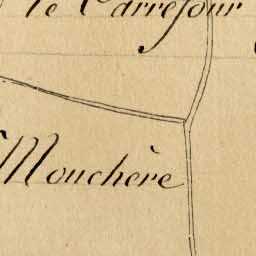 le Carrefour
Mouchère